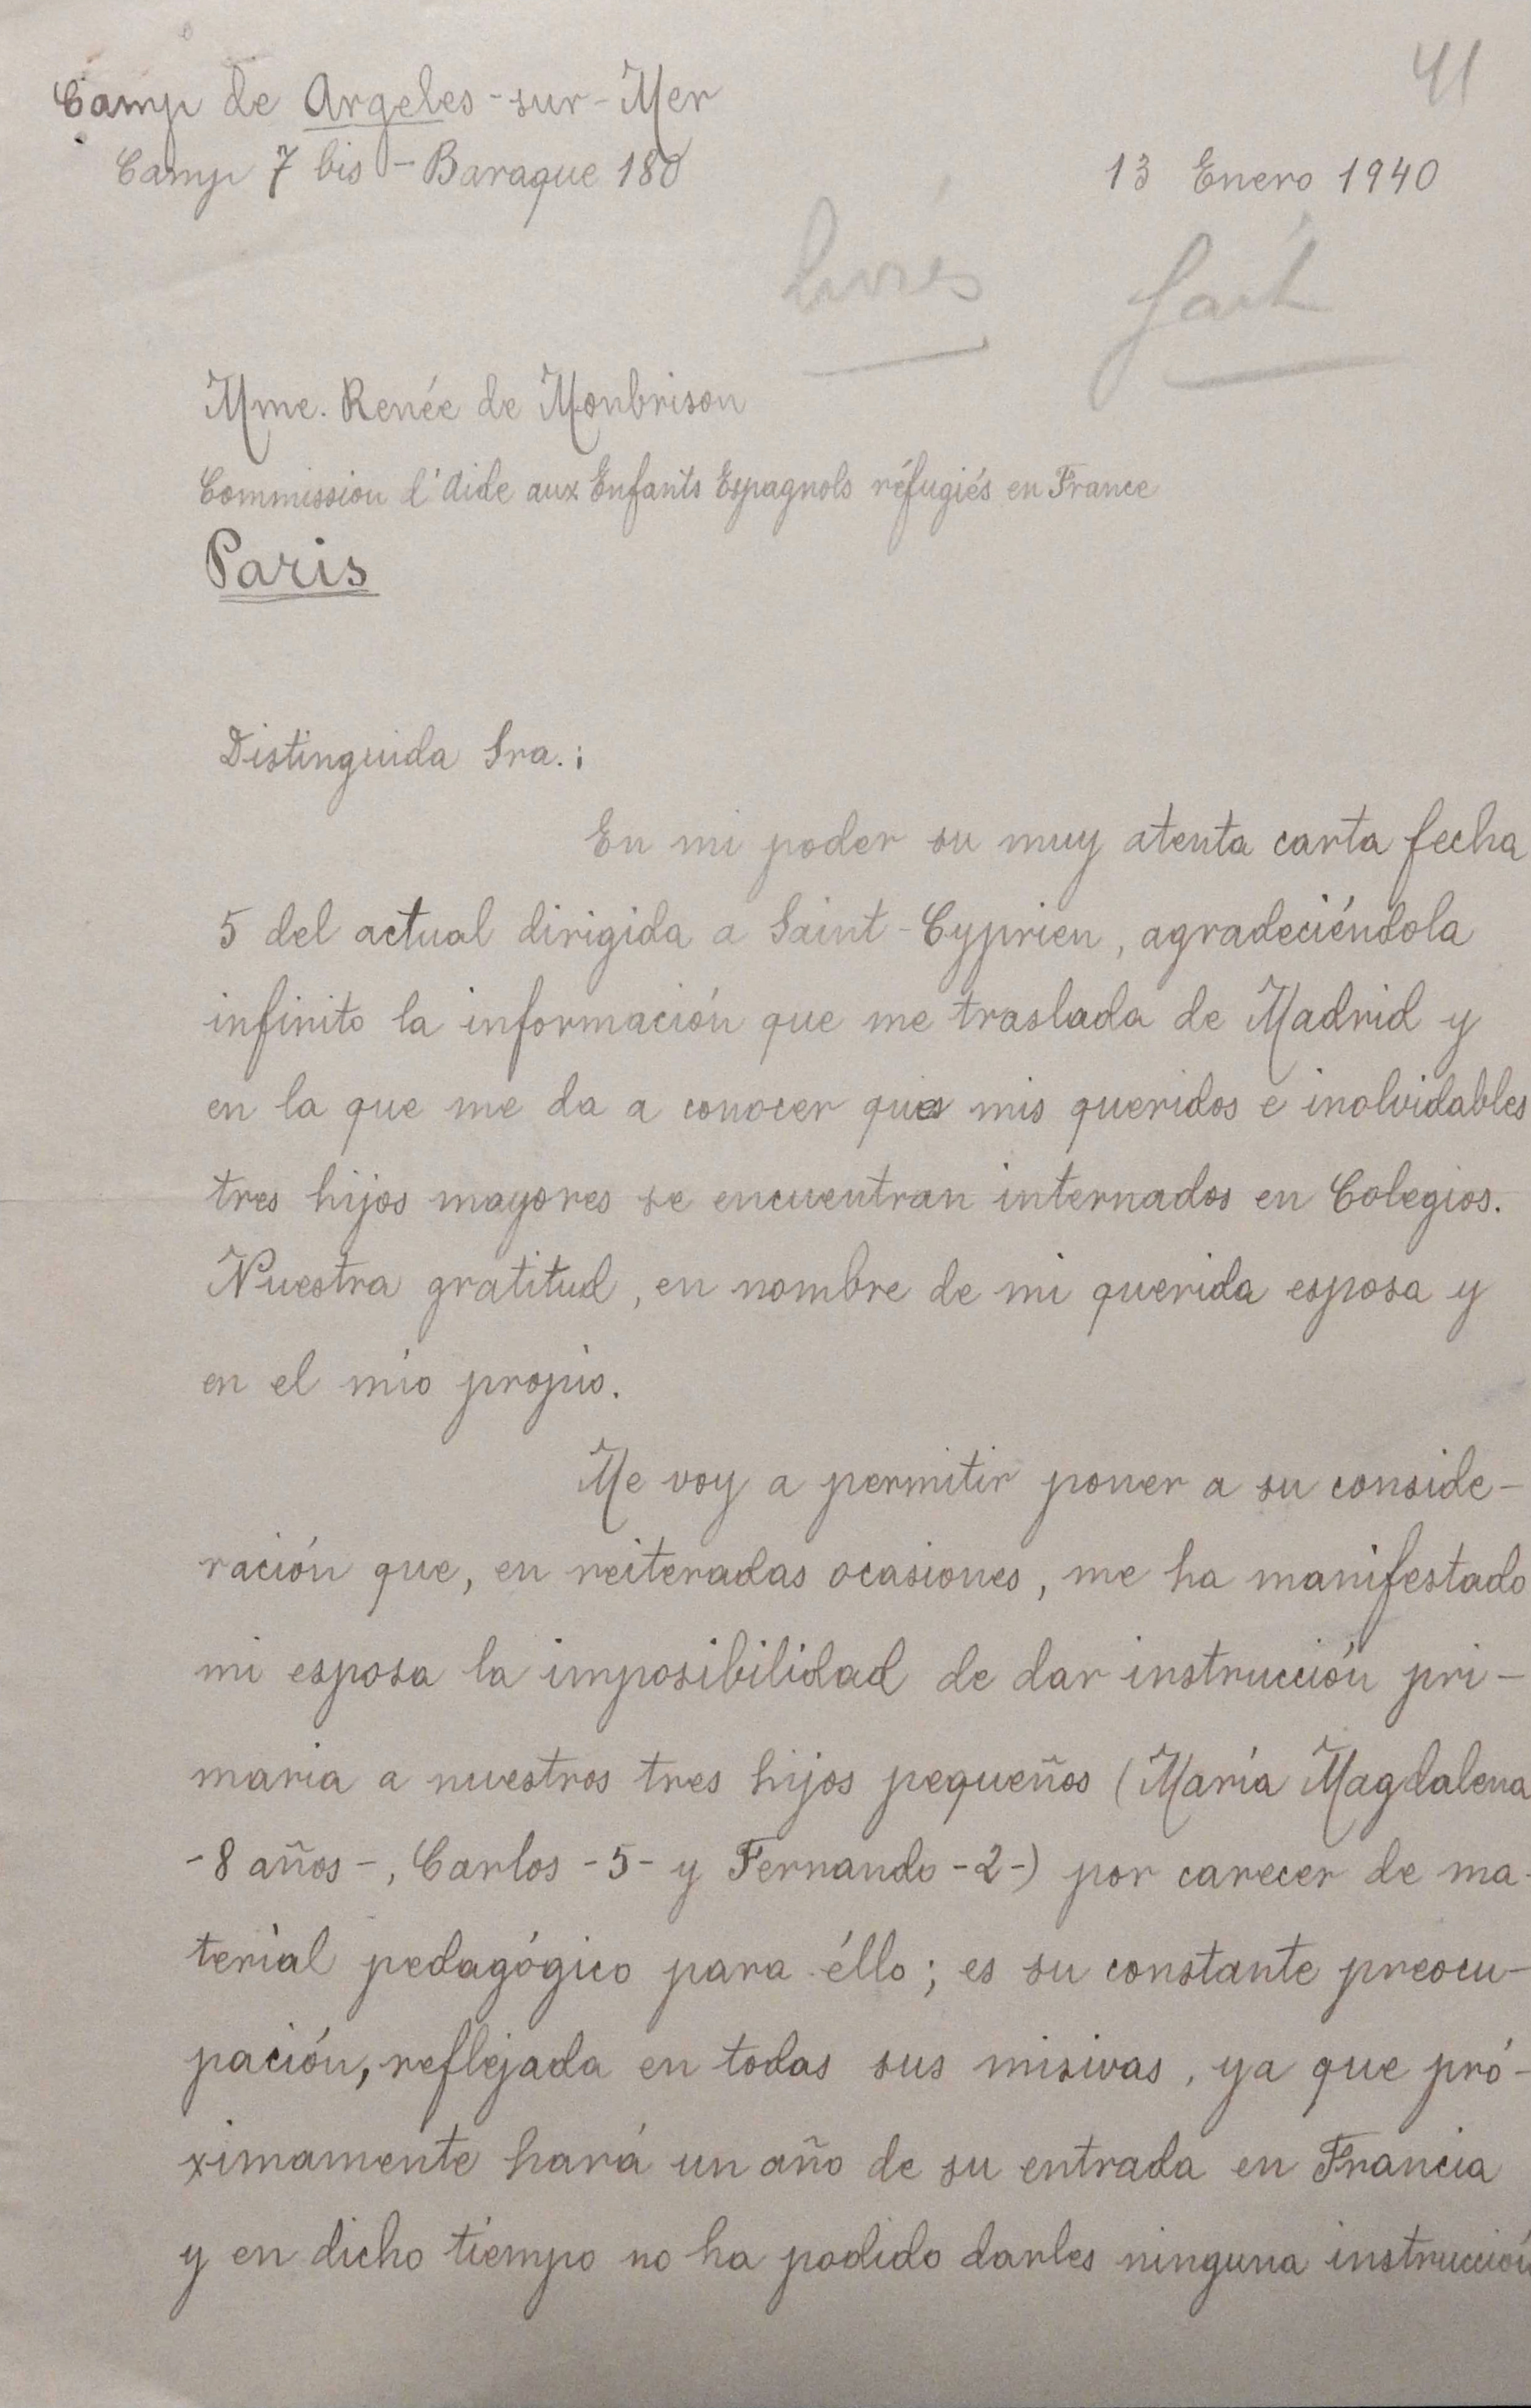 41
Camp de Argeles-sur-Mer
Camp 7 bis - Baraque 180
13 Enero 1940
livres fait
Mme. Renée de Monbrison
Commission d'Aide aux Enfants Espagnols réfugiés en France
Paris
Distinguida Sra.:
En mi poder su muy atenta carta fecha
5 del actual dirigida a Saint-Cyprien, agradeciéndola
infinito la información que me traslada de Madrid y
en la que me da a conocer que mis queridos e inolvidables
tres hijos mayores se encuentran internados en Colegios.
Nuestra gratitud, en nombre de mi querida esposa y
en el mío propio.
Me voy a permitir poner a su conside-
ración que, en reiteradas ocasiones, me ha manifestado
mi esposa la imposibilidad de dar instrucción pri-
maria a nuestros tres hijos pequeños (María Magdalena
-8 años-, Carlos -5- y Fernando -2-) por carecer de ma-
terial pedagógico para éllo; es su constante preocu-
pación, reflejada en todas sus misivas, ya que pró-
ximamente hará un año de su entrada en Francia
y en dicho tiempo no ha podido darles ninguna instrucción